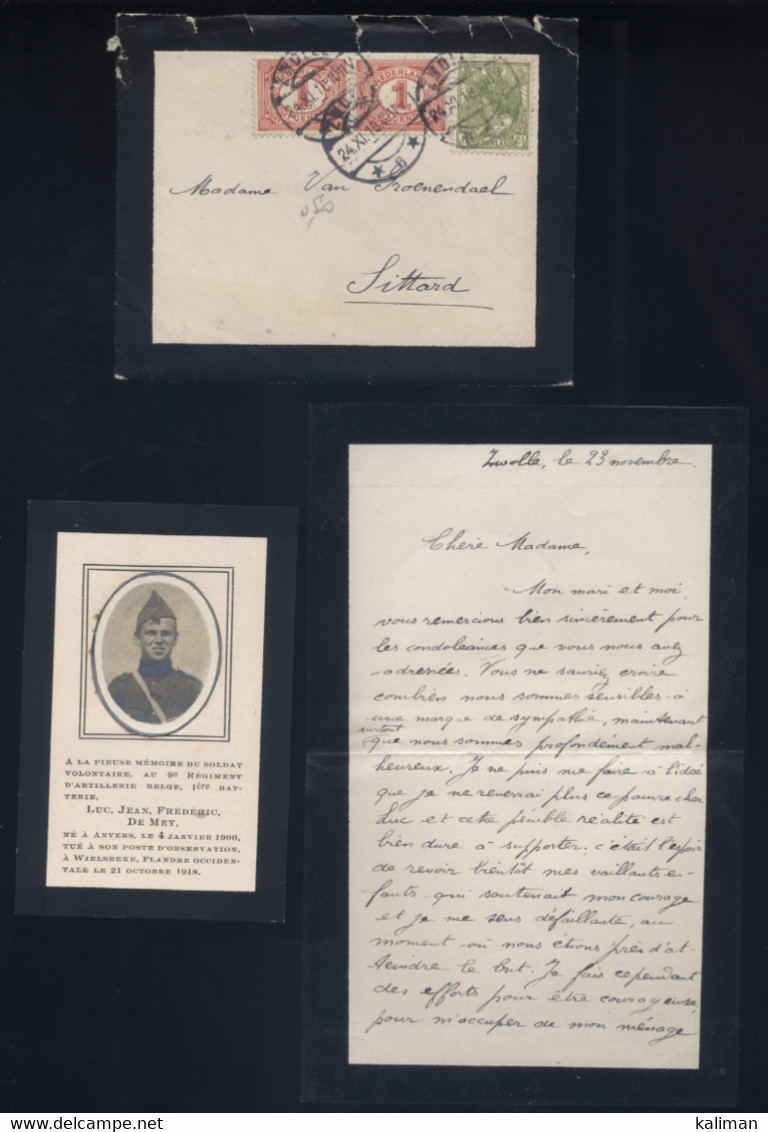 ZWOLLE
NEDERLAND
1
1
24.XI.18
Madame Van Groenendael
Sittard
Zwolle, le 23 novembre.
Chère Madame,
Mon mari et moi
vous remercions bien sincèrement pour
les condoléances que vous nous avez
adressées. Vous ne sauriez croire
combien nous sommes sensibles à
une marque de sympathie, maintenant
surtout
que nous sommes profondément mal-
heureux. Je ne puis me faire à l'idée
que je ne reverrai plus ce pauvre cher
Luc et cette pénible réalité est
bien dure à supporter; c'était l'espoir
de revoir bientôt mes vaillants en-
fants qui soutenait mon courage
et je me sens défaillante, au
moment où nous étions près d'at-
teindre le but. Je fais cependant
des efforts pour être courageuse,
pour m'occuper de mon ménage
A LA PIEUSE MÉMOIRE DU SOLDAT
VOLONTAIRE, AU 9e RÉGIMENT
D'ARTILLERIE BELGE, 1ère BAT-
TERIE.
LUC, JEAN, FRÉDÉRIC,
DE MEY.
NÉ À ANVERS, LE 4 JANVIER 1900,
TUÉ À SON POSTE D'OBSERVATION,
À WIELSBEKE, FLANDRE OCCIDEN-
TALE LE 21 OCTOBRE 1918.
www.delcampe.net
kaliman